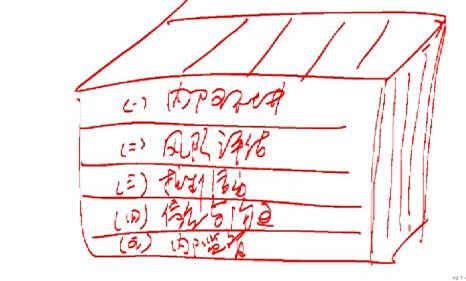 (一) 内部环境
(二) 风险评估
(三) 控制活动
(四) 信息与沟通
(五) 内部监督